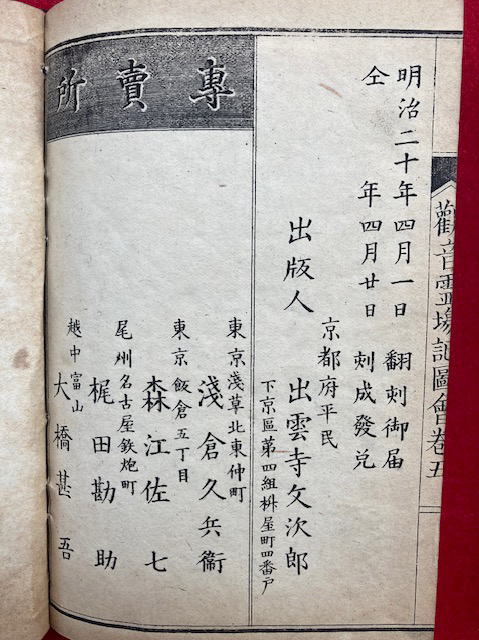 觀音霊場記圖會卷五
明治二十年四月一日 翻刻御届
仝 年四月廿日 刻成發兌
京都府平民
出版人 出雲寺文次郎
下京區第四組桝屋町四番戸
專賣所
東京淺草北東仲町
淺倉久兵衞
東京飯倉五丁目
森江佐七
尾州名古屋鉄炮町
梶田勘助
越中富山
大橋甚吾